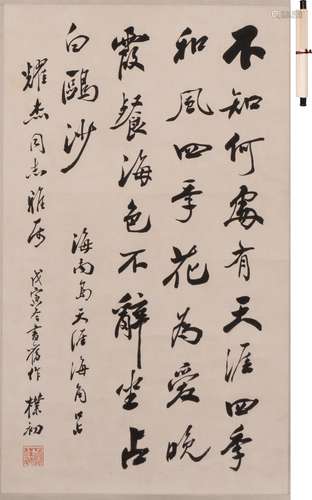 不知何處有天涯四季
和風四季花為愛晚
霞餐海色不辭坐占
白鷗沙
海南島天涯海角口占
耀杰同志雅屬
戊寅冬書舊作 樸初